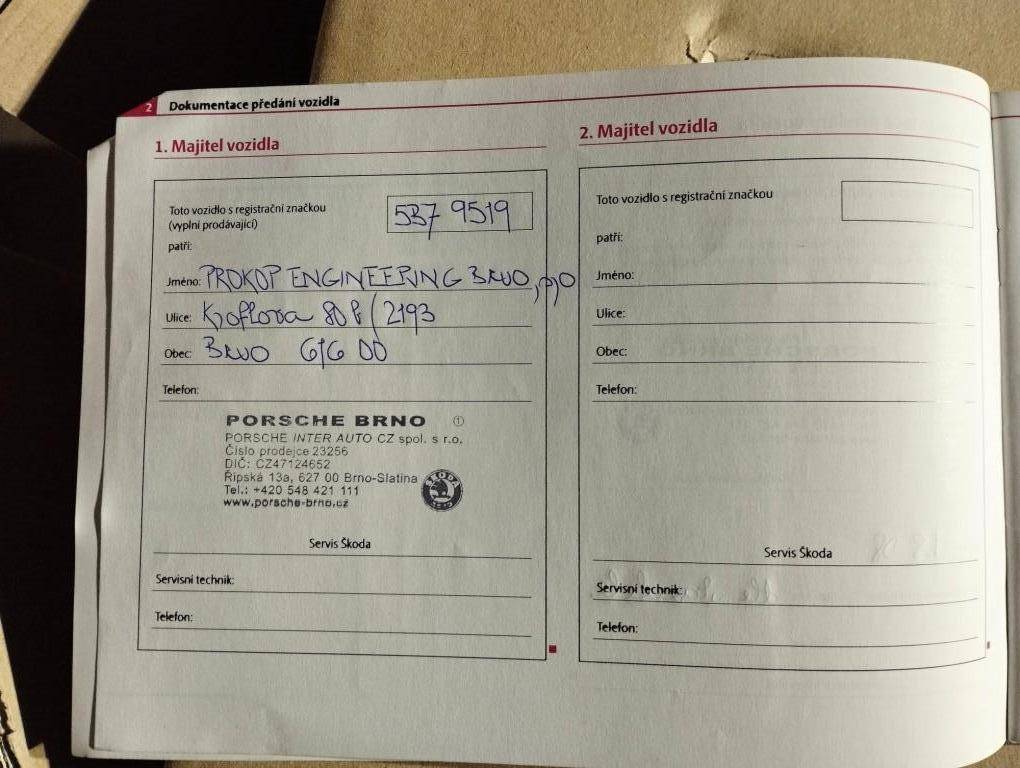 2 Dokumentace předání vozidla
1. Majitel vozidla
Toto vozidlo s registrační značkou
(vyplní prodávající)
5B7 9519
patří:
Jméno: PROKOP ENGINEERING BRNO,
Ulice: 2193
Obec: BRNO 616 00
Telefon:
PORSCHE BRNO 1
PORSCHE INTER AUTO CZ spol. s r.o.
Číslo prodejce 23256
DIČ: CZ47124652
Řipská 13a, 627 00 Brno-Slatina
Tel.: +420 548 421 111
www.porsche-brno.cz
ŠKODA
AUTO
Servis Škoda
Servisní technik:
Telefon:
2. Majitel vozidla
Toto vozidlo s registrační značkou
patří:
Jméno:
Ulice:
Obec:
Telefon:
Servis Škoda
Servisní technik:
Telefon: